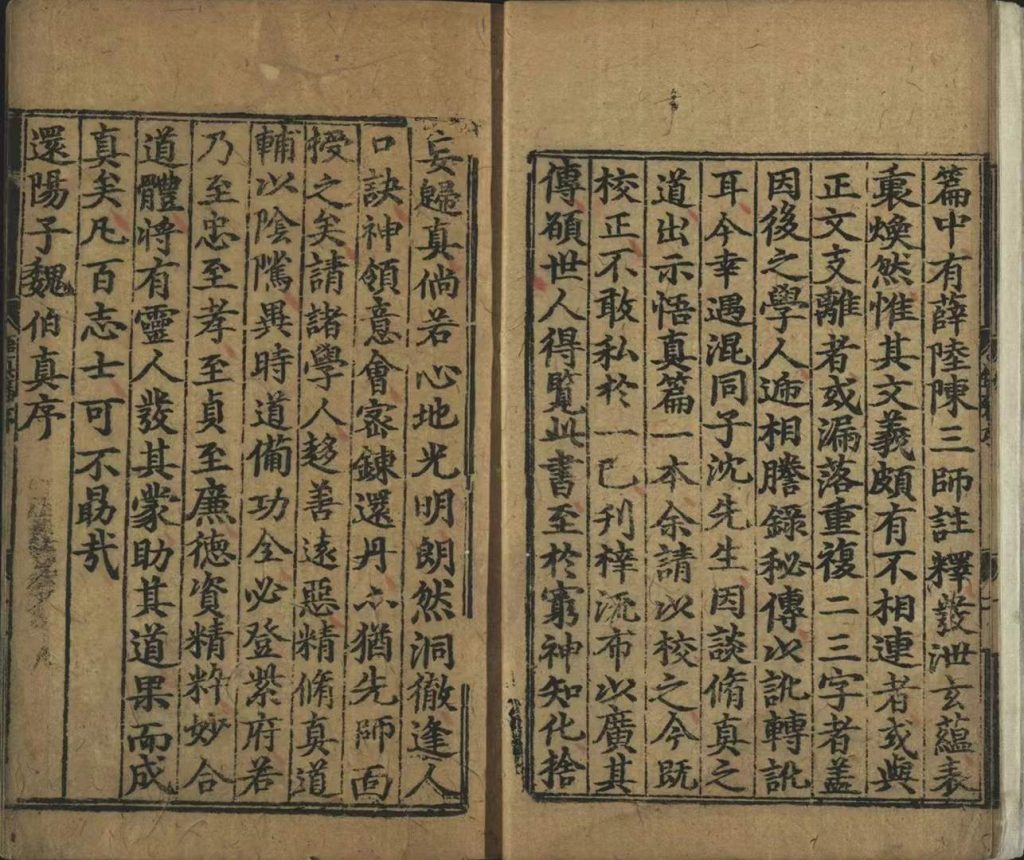 篇中有薛陸陳三師註釋發泄玄蘊表
裏煥然惟其文義頗有不相連者或與
正文支離者或漏落重複二三字者蓋
因後之學人逓相謄錄秘傳以訛轉訛
耳今幸遇混同子沈先生因談脩真之
道出示悟真篇一本余請以校之今既
校正不敢私於一己刋梓流布以廣其
傳碩世人得覧此書至於窮神知化捨
妄歸真倘若心地光明朗然洞徹逢人
口訣神領意會宻鍊還丹亦猶先師靣
授之矣請諸學人趍善遠惡精脩真道
輔以陰隲異時道備功全必登紫府若
乃至忠至孝至貞至廉德資精粹妙合
道體將有靈人發其蒙助其道果而成
真矣凡百志士可不勗哉
還陽子魏伯真序